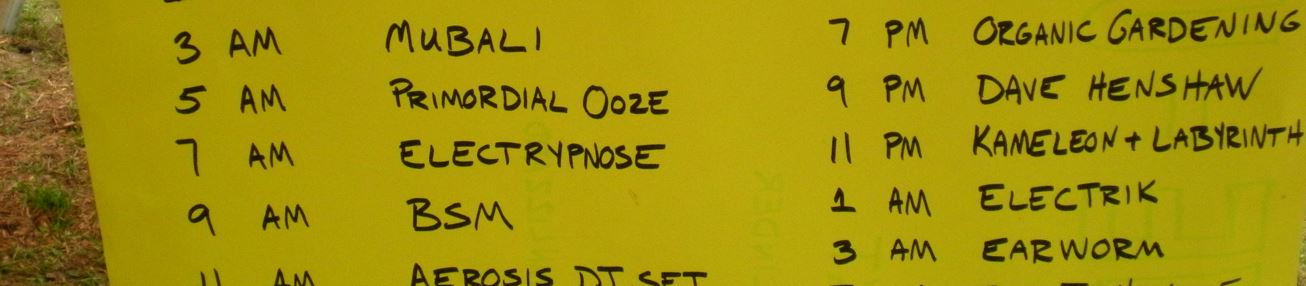 3 AM MUBALI
5 AM PRIMORDIAL OOZE
7 AM ELECTRYPNOSE
9 AM BSM
11 AM AEROSIS DJ SET
7 PM ORGANIC GARDENING
9 PM DAVE HENSHAW
11 PM KAMELEON + LABYRINTH
1 AM ELECTRIK
3 AM EARWORM